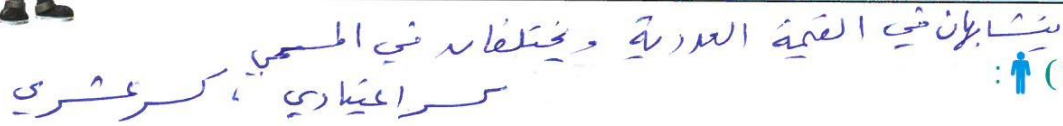 يتشابهان في القيمة العددية ويختلفان في المسمى
) :
كسر اعتيادي ، كسر عشري